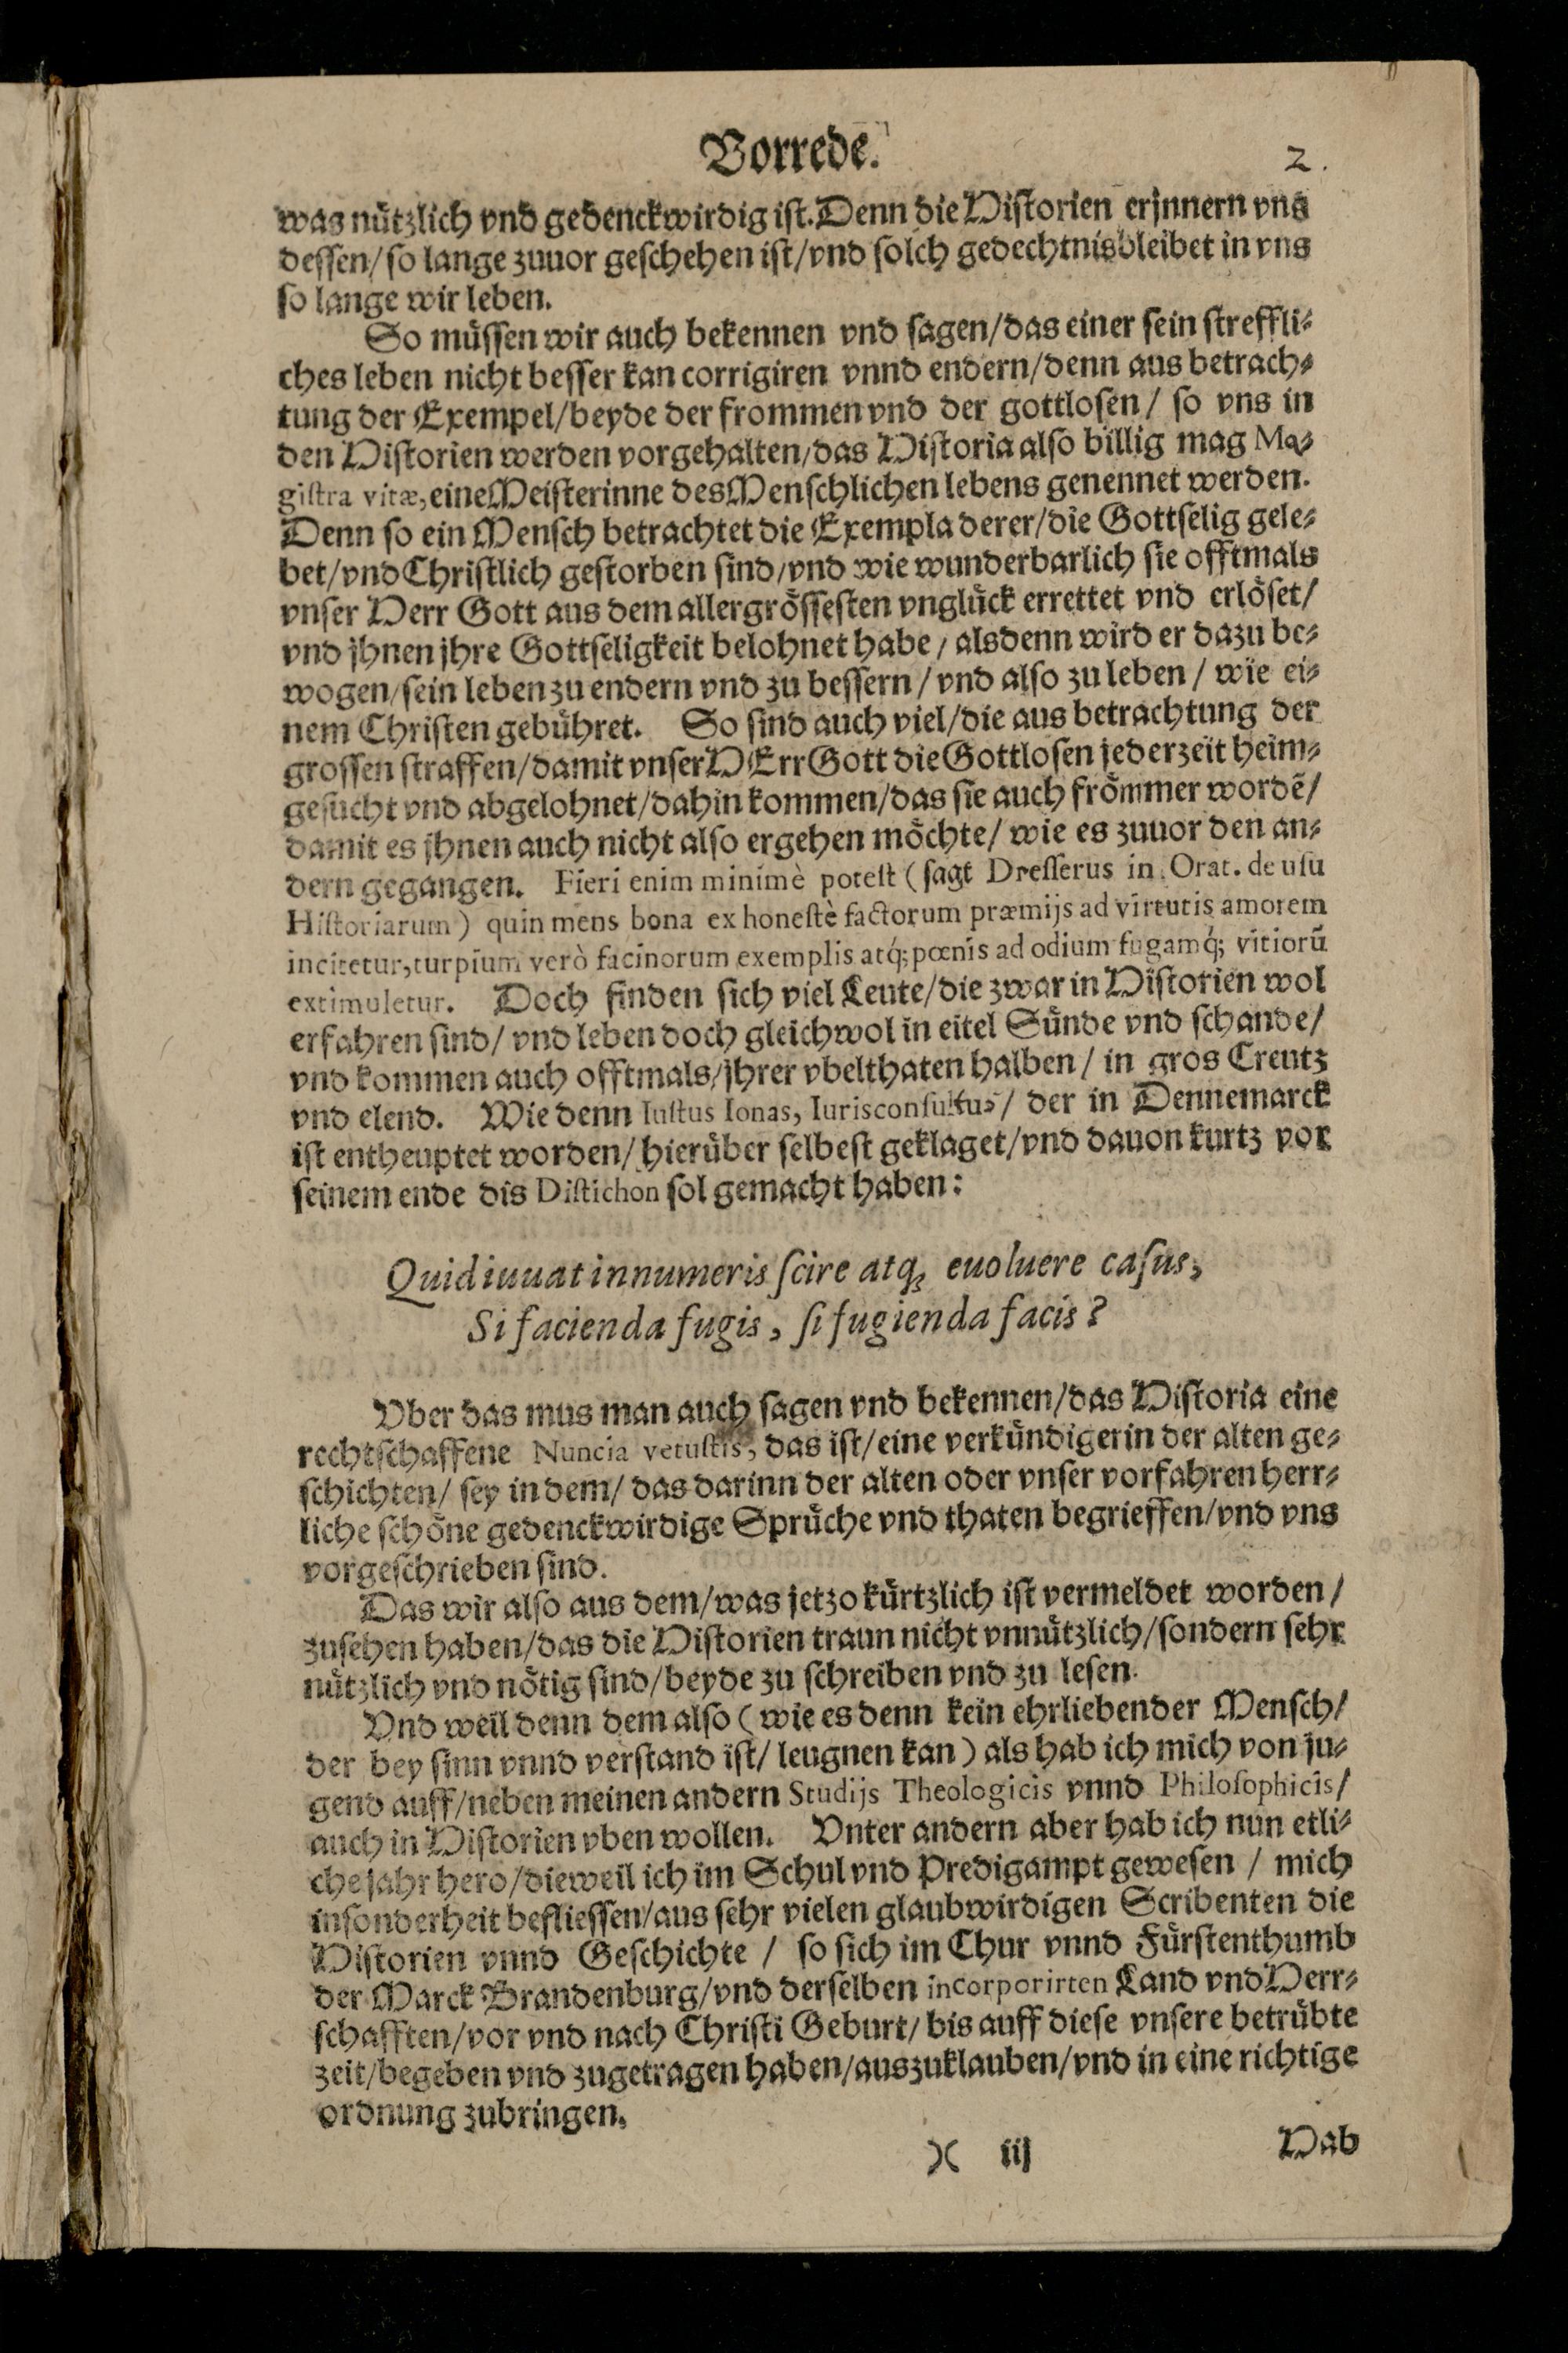 Vorrede.
2.
was nützlich vnd gedenckwirdig ist. Denn die Historien erjnnern vns
dessen/ so lange zuuor geschehen ist/ vnd solch gedechtnis bleibet in vns
so lange wir leben.
So müssen wir auch bekennen vnd sagen/ das einer sein streffli⸗
ches leben nicht besser kan corrigiren vnnd endern/ denn aus betrach⸗
tung der Exempel/ beyde der frommen vnd der gottlosen/ so vns in
den Historien werden vorgehalten/ das Historia also billig mag Ma⸗
gistra vitæ, eine Meisterinne des Menschlichen lebens genennet werden.
Denn so ein Mensch betrachtet die Exempla derer/ die Gottselig gele⸗
bet/ vnd Christlich gestorben sind/ vnd wie wunderbarlich sie offtmals
vnser Herr Gott aus dem allergrössesten vnglück errettet vnd erlöset/
vnd jhnen jhre Gottseligkeit belohnet habe/ alsdenn wird er dazu be⸗
wogen/ sein leben zu endern vnd zu bessern/ vnd also zu leben/ wie ei⸗
nem Christen gebühret. So sind auch viel/ die aus betrachtung der
grossen straffen/ damit vnser HErr Gott die Gottlosen jederzeit heim⸗
gesucht vnd abgelohnet/ dahin kommen/ das sie auch frömmer wordē/
damit es jhnen auch nicht also ergehen möchte/ wie es zuuor den an⸗
dern gegangen. Fieri enim minimè potest (sagt Dresserus in Orat. de usu
Historiarum) quin mens bona ex honestè factorum præmijs ad virtutis amorem
incitetur, turpium verò facinorum exemplis atq́; pœnis ad odium fugamq́; vitiorū
extimuletur. Doch finden sich viel Leute/ die zwar in Historien wol
erfahren sind/ vnd leben doch gleichwol in eitel Sünde vnd schande/
vnd kommen auch offtmals/ jhrer vbelthaten halben/ in gros Creutz
vnd elend. Wie denn Iustus Ionas, Iurisconsultus/ der in Dennemarck
ist entheuptet worden/ hierüber selbest geklaget/ vnd dauon kurtz vor
seinem ende dis Distichon sol gemacht haben:
Quid iuuat innumeris scire atq; euoluere casus,
Si facienda fugis, si fugienda facis?
Vber das mus man auch sagen vnd bekennen/ das Historia eine
rechtschaffene Nuncia vetustis, das ist/ eine verkündigerin der alten ge⸗
schichten/ sey in dem/ das darinn der alten oder vnser vorfahren herr⸗
liche schöne gedenckwirdige Sprüche vnd thaten begrieffen/ vnd vns
vorgeschrieben sind.
Das wir also aus dem/ was jetzo kürtzlich ist vermeldet worden/
zusehen haben/ das die Historien traun nicht vnnützlich/ sondern sehr
nützlich vnd nötig sind/ beyde zu schreiben vnd zu lesen.
Vnd weil denn dem also (wie es denn kein ehrliebender Mensch/
der bey sinn vnnd verstand ist/ leugnen kan) als hab ich mich von ju⸗
gend auff/ neben meinen andern Studijs Theologicis vnnd Philosophicis/
auch in Historien vben wollen. Vnter andern aber hab ich nun etli⸗
che jahr hero/ dieweil ich im Schul vnd Predigampt gewesen/ mich
insonderheit befliessen/ aus sehr vielen glaubwirdigen Scribenten die
Historien vnnd Geschichte/ so sich im Chur vnnd Fürstenthumb
der Marck Brandenburg/ vnd derselben incorporirten Land vnd Herr⸗
schafften/ vor vnd nach Christi Geburt/ bis auff diese vnsere betrübte
zeit/ begeben vnd zugetragen haben/ auszuklauben/ vnd in eine richtige
ordnung zubringen.
)( iij
Hab